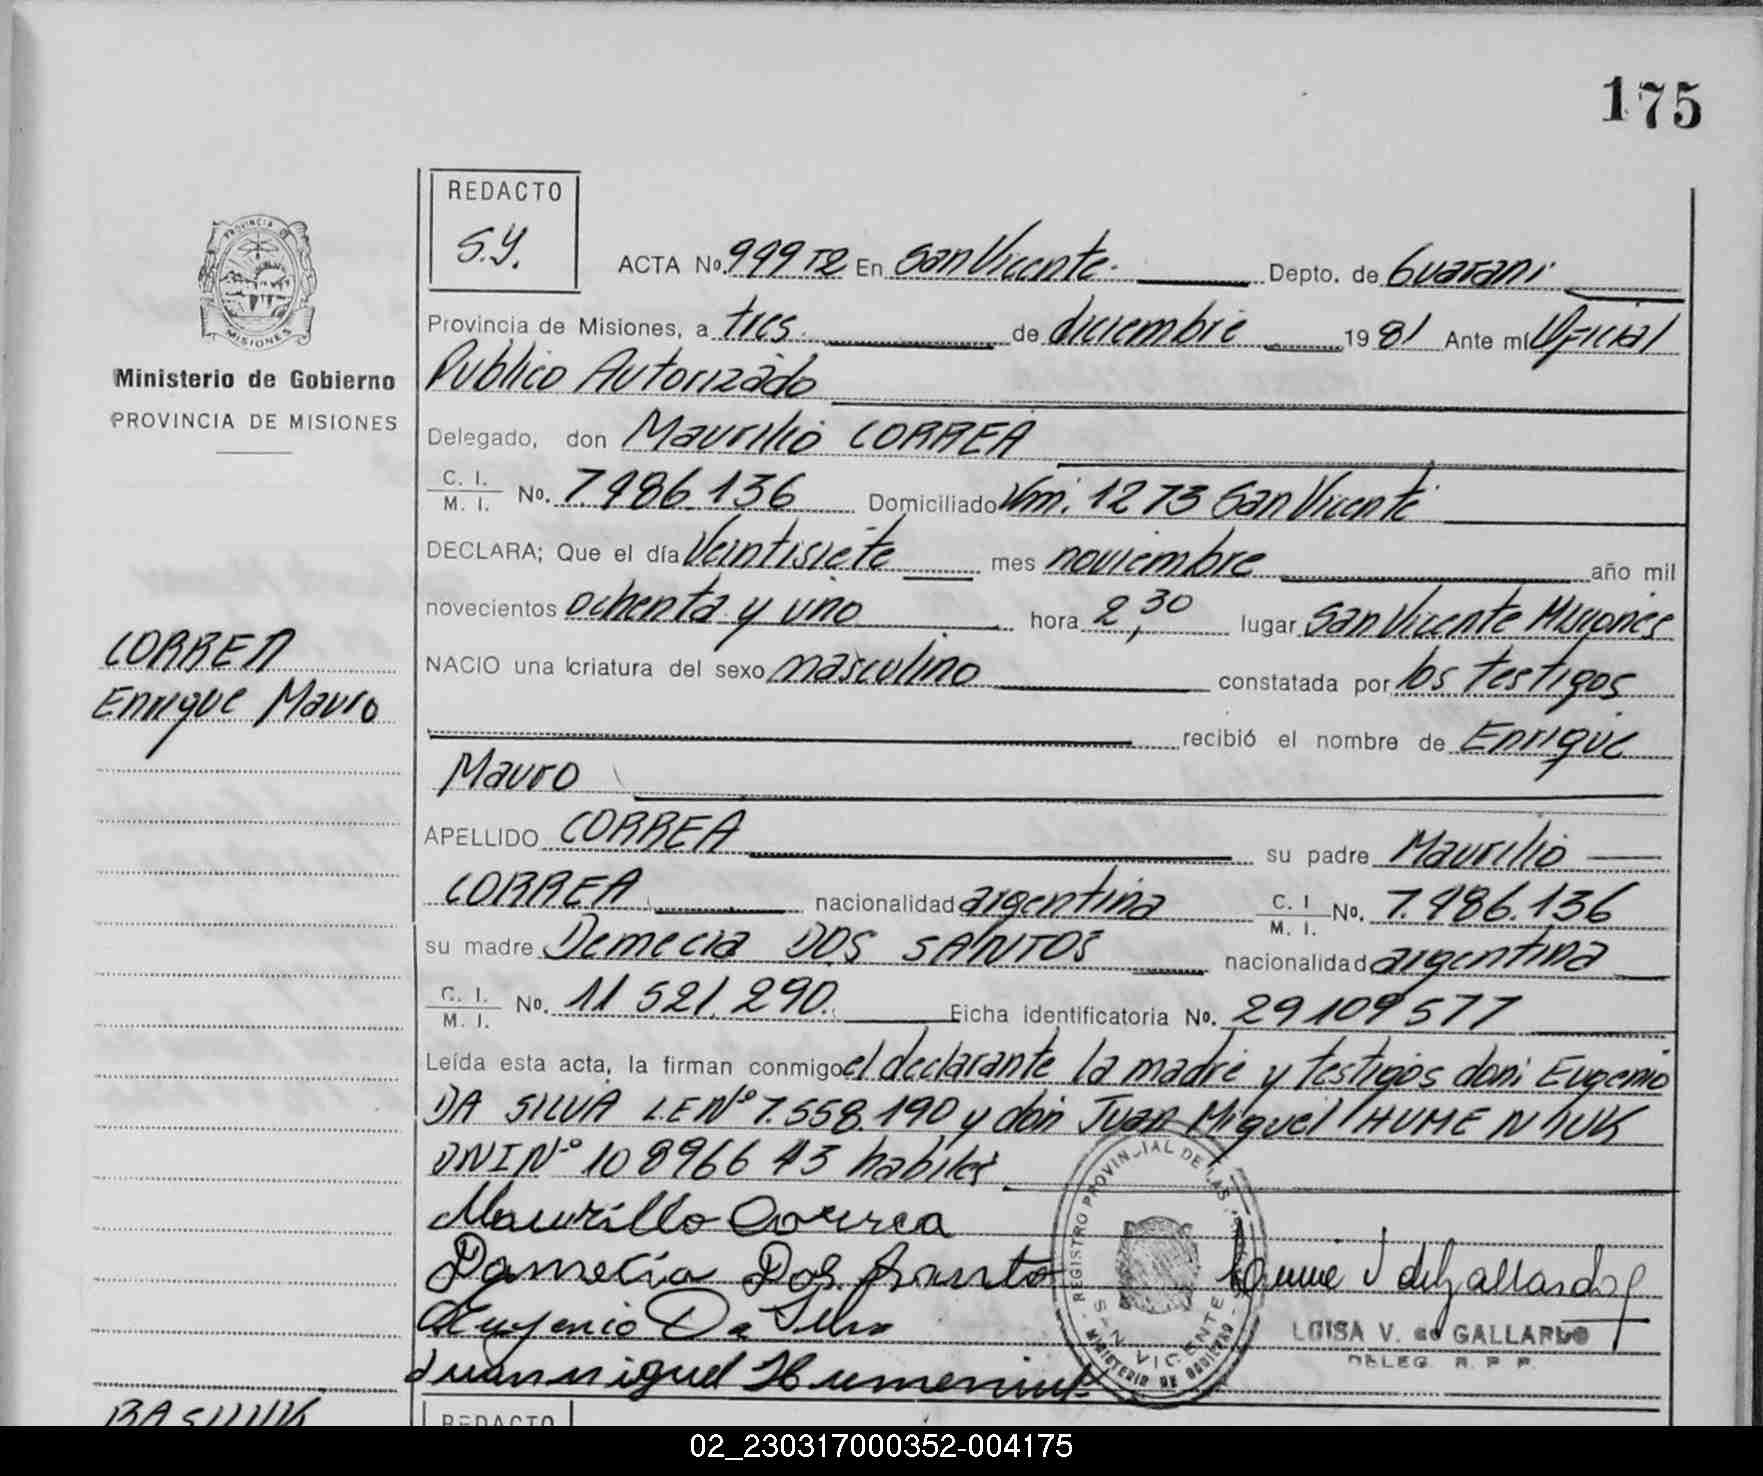 175
REDACTO
S.Y.
ACTA No. 999 T2 En San Vicente. Depto. de Guarani
Provincia de Misiones, a tres de diciembre 1981 Ante mi Oficial
Publico Autorizado
PROVINCIA DE
MISIONES
Ministerio de Gobierno
PROVINCIA DE MISIONES
Delegado, don Maurilio CORREA
C. I.
M. I. No. 7.486.136 Domiciliado Km. 1273 San Vicente
DECLARA; Que el día Veintisiete mes noviembre año mil
novecientos ochenta y uno hora 2,30 lugar San Vicente Misiones
CORREA
Enrique Mauro
NACIO una criatura del sexo masculino constatada por los testigos
recibió el nombre de Enrique
Mauro
APELLIDO CORREA su padre Maurilio
CORREA nacionalidad argentina C. I. M. I. No. 7.486.136
su madre Demecia DOS SANTOS nacionalidad argentina
C. I.
M. I. No. 11 521.290. Ficha identificatoria No. 29109577
Leída esta acta, la firman conmigo el declarante la madre y testigos don: Eugenio
DA SILVA LE Nº 7.558.190 y don Juan Miguel HUMENIUK
DNI Nº 10 896643 habiles
Maurillo Correa
Damecia Dos Santo
Eugenio Da Silva
Juan miguel Humeniuk
REGISTRO PROVINCIAL DE LAS
SAN VICENTE
MINISTERIO DE GOBIERNO
de Gallardo
LUISA V. de GALLARDO
DELEG. R. P. P.
BASILIUK
REDACTO
02_230317000352-004175